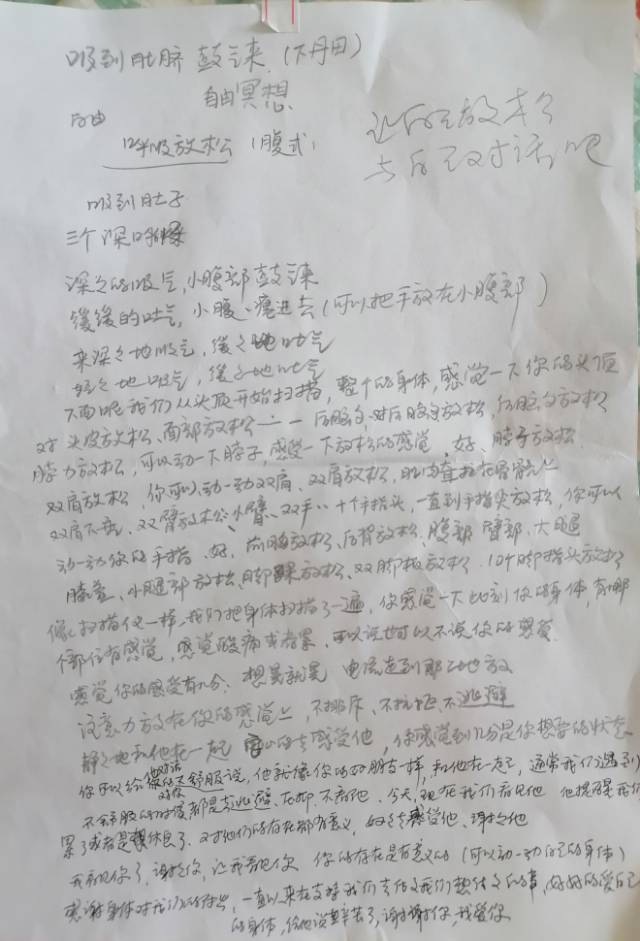 吸到肚脐 鼓起来.(下丹田)
自由冥想
自由
呼吸放松 (腹式)
让自己放松
与自己对话吧
吸到肚子
三个深呼吸
深深的吸气,小腹部鼓起来
缓缓的吐气,小腹瘪进去(可以把手放在小腹部)
来深深地吸气,缓缓地吐气
轻轻地吸气,缓缓地吐气
下面呢我们从头顶开始扫描,整个的身体,感觉一下你的头顶
对头皮放松、面部放松 后脑勺,对后脑勺放松,后脑勺放松
脖子放松,可以动一下脖子,感觉一下放松的感觉 好、脖子放松.
双肩放松,你可以动一动双肩、双肩放松,肌肉 在骨骼上
双肩下垂、双臂放松、小臂、双手、十个手指头,一直到手指尖放松,你可以
动一动你的手指.好.前胸放松、后背放松.腹部 臀部、大腿
膝盖、小腿部放松、脚踝放松、双脚板放松.10个脚指头放松
像扫描仪一样,我们把身体扫描了一遍,你感觉一下此刻你的身体,有哪
个部位有感觉,感觉酸痛或者累.可以说也可以不说你的感受.
感觉你的感受有几分. 想象就是 电流 到那个地方
注意力放在你的感觉上,不排斥、不抗拒、不逃避
静静地和他在一起 的去感受他,你感觉到几分是你想要的状态
你可以给他对话 对你的不舒服说,他就像你的好朋友一样,和他在一起,通常我们遇到
不舒服的时候都是去逃避、在抑、不看他.今天,现在我们看见他 他提醒我们
累了或者是要休息了.对他们的存在都有意义,好好去感受他、谢谢他
我看见你了,谢谢你,让我看见你 你的存在是有意义的(可以动一动自己的身体)
感谢身体对我们的付出,一直以来在支持我们去做我们想做的事,好好的爱自己
的身体,给他说辛苦了,谢谢你,我爱你